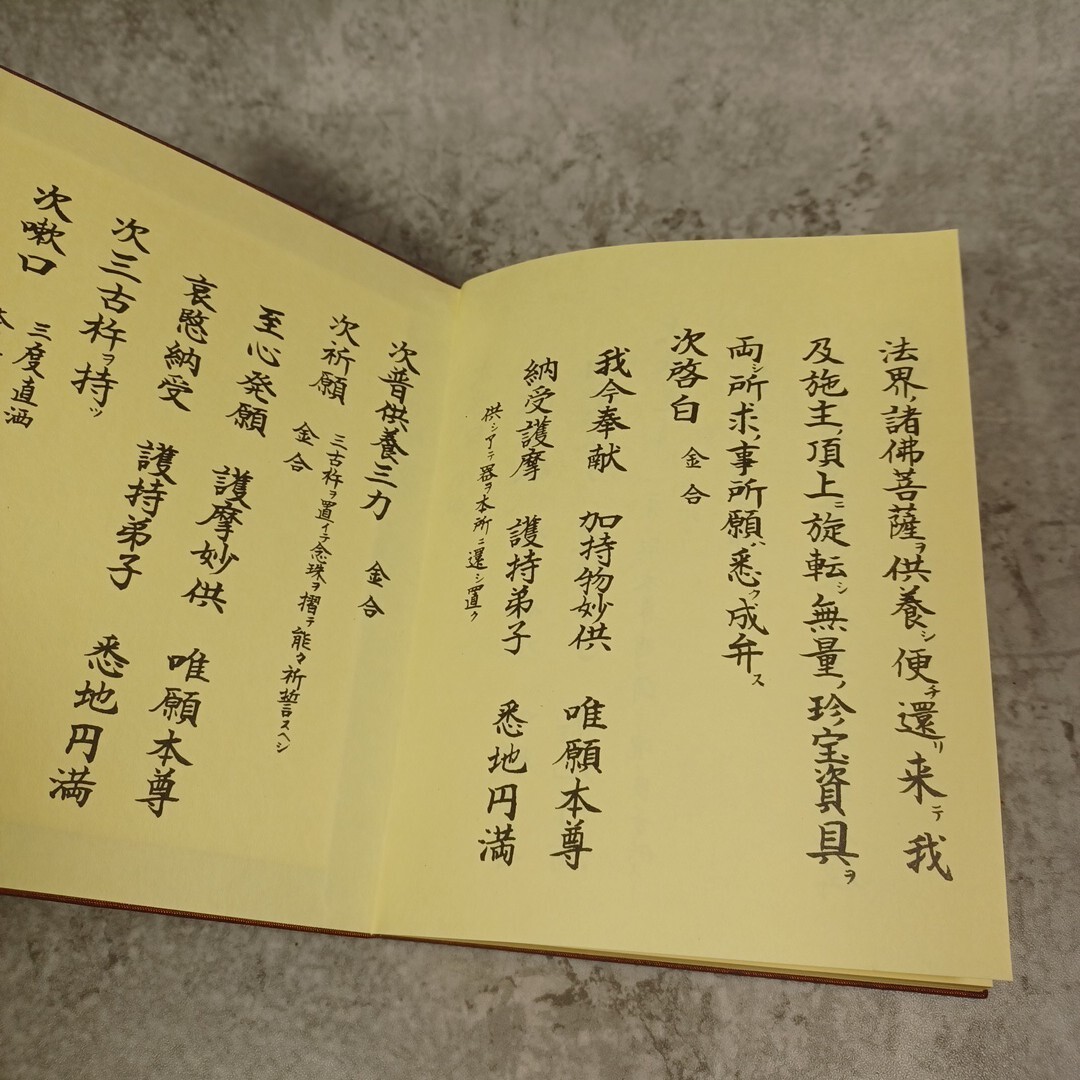 法界ノ諸佛菩薩ヲ供養シ便チ還リ来テ我
及施主ノ頂上ニ旋転シ無量ノ珍宝資具ヲ
雨シ所求ノ事所願ハ悉ク成弁ス
次啓白 金合
我今奉献 加持物妙供 唯願本尊
納受護摩 護持弟子 悉地円満
供シアテ器ヲ本所ニ還シ置ク
次普供養三力 金合
次祈願 金合 三古杵ヲ置イテ念珠ヲ摺テ能々祈誓スヘシ
至心発願 護摩妙供 唯願本尊
哀愍納受 護持弟子 悉地円満
次三古杵ヲ持ツ
次嗽口 三度直洒